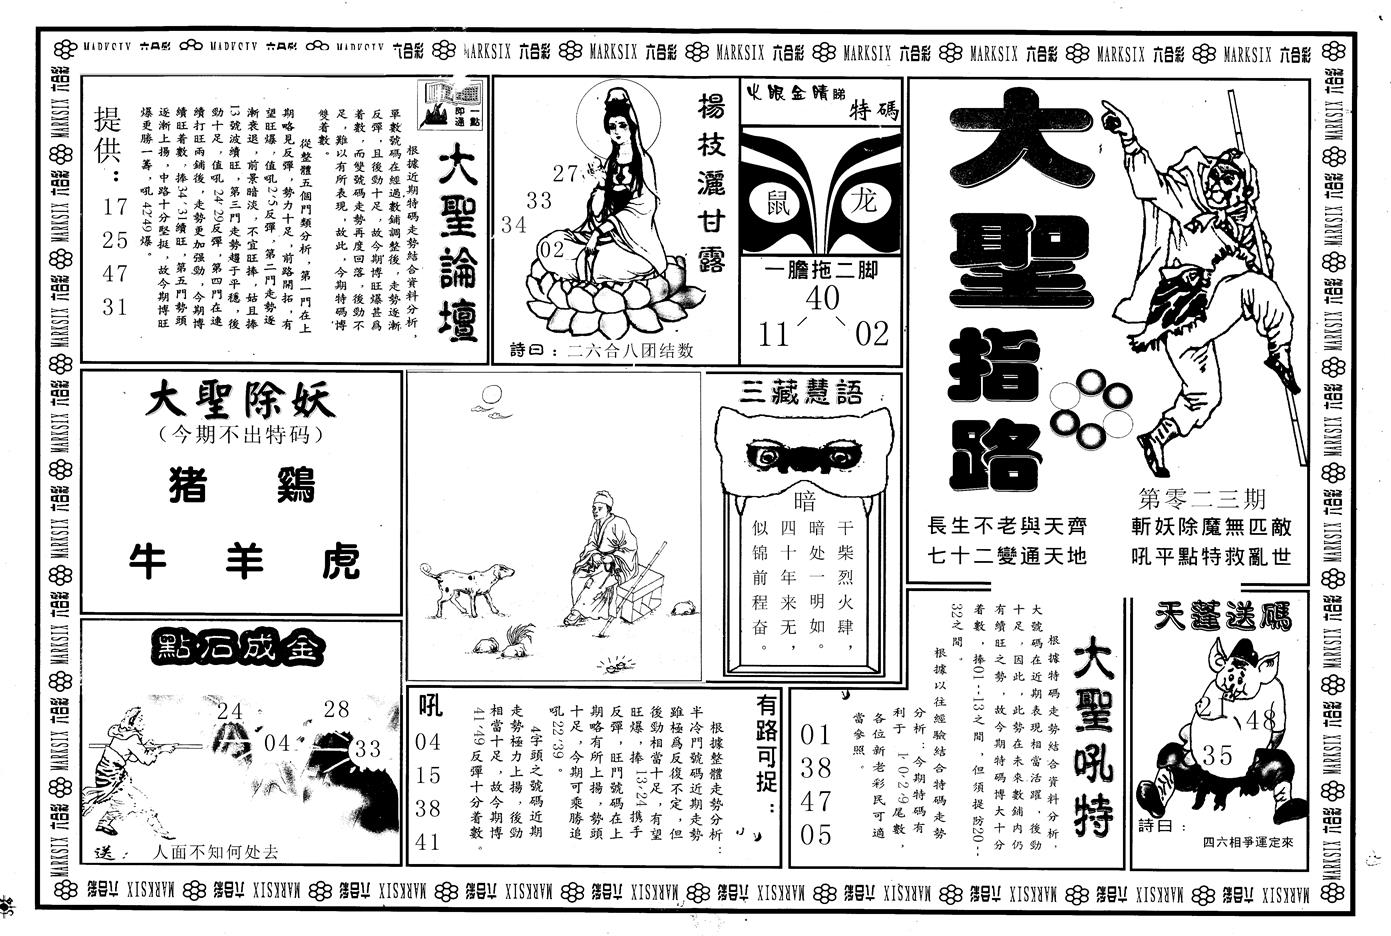 MARKSIX 六合彩 MARKSIX 六合彩 MARKSIX 六合彩 MARKSIX 六合彩 MARKSIX 六合彩 MARKSIX 六合彩 MARKSIX 六合彩 MARKSIX 六合彩 MARKSIX 六合彩 MARKSIX 六合彩
大聖指路
第零二三期
長生不老與天齊
七十二變通天地
斬妖除魔無匹敵
吼平點特救亂世
火眼金睛睇
特碼
鼠
龙
一膽拖二脚
40
11
02
楊枝灑甘露
27
33
34
02
詩曰：二六合八团结数
一點即通
大聖論壇
根據近期特碼走勢結合資料分析，
單數號碼在經過數鋪調整後，走勢逐漸
反彈，且後勁十足，故今期博旺爆甚爲
着數，而雙號碼走勢再度回落，後勁不
足，難以有所表現，故此，今期特碼博
雙着數。
從整體五個門類分析，第一門在上
期略見反彈，勢力十足，前路開拓，有
望旺爆，值吼2·5反彈，第二門走勢逐
漸衰退，前景暗淡，不宜旺捧，姑且捧
13號波續旺，第三門走勢趨于平穩，後
勁十足，值吼24·29反彈，第四門在連
續打旺兩鋪後，走勢更加强勁，今期博
續旺着數，捧34·31續旺，第五門勢頭
逐漸上揚，中路十分堅挺，故今期博旺
爆更勝一籌，吼42·49爆。
提供：
17
25
47
31
大聖除妖
（今期不出特码）
猪 鷄
牛 羊 虎
三藏慧語
暗
干柴烈火肆，
暗处一明如。
四十年来无，
似锦前程奋。
點石成金
24
28
04
33
送：
人面不知何处去
有路可捉：
根據整體走勢分析：
半冷門號碼近期走勢
雖極爲反復不定，但
後勁相當十足，有望
旺爆，捧13·24携手
反彈，旺門號碼在上
期略有所上揚，勢頭
十足，今期可乘勝追
吼22·39。
4字頭之號碼近期
走勢極力上揚，後勁
相當十足，故今期博
41·49反彈十分着數。
吼
04
15
38
41
大聖吼特
根據特碼走勢結合資料分析，
大號碼在近期表現相當活躍，後勁
十足，因此，此勢在未來數鋪内仍
有續旺之勢，故今期特碼博大十分
着數，捧01--13之間，但須提防20--
32之間。
根據以往經驗結合特碼走勢
分析：今期特碼有
利于1·0·2·9尾數，
各位新老彩民可適
當參照。
01
38
47
05
天蓬送碼
2
48
35
詩曰：
四六相爭運定來